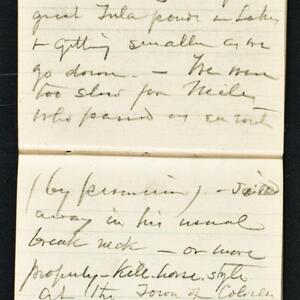 great Tula ponds or Lakes
& getting smaller as we
go down. — We were
too slow for Neily
who passed us en route
(by permission). —
away in his usual
break neck — or more
properly — Kill horse style
At the Town of Colusa